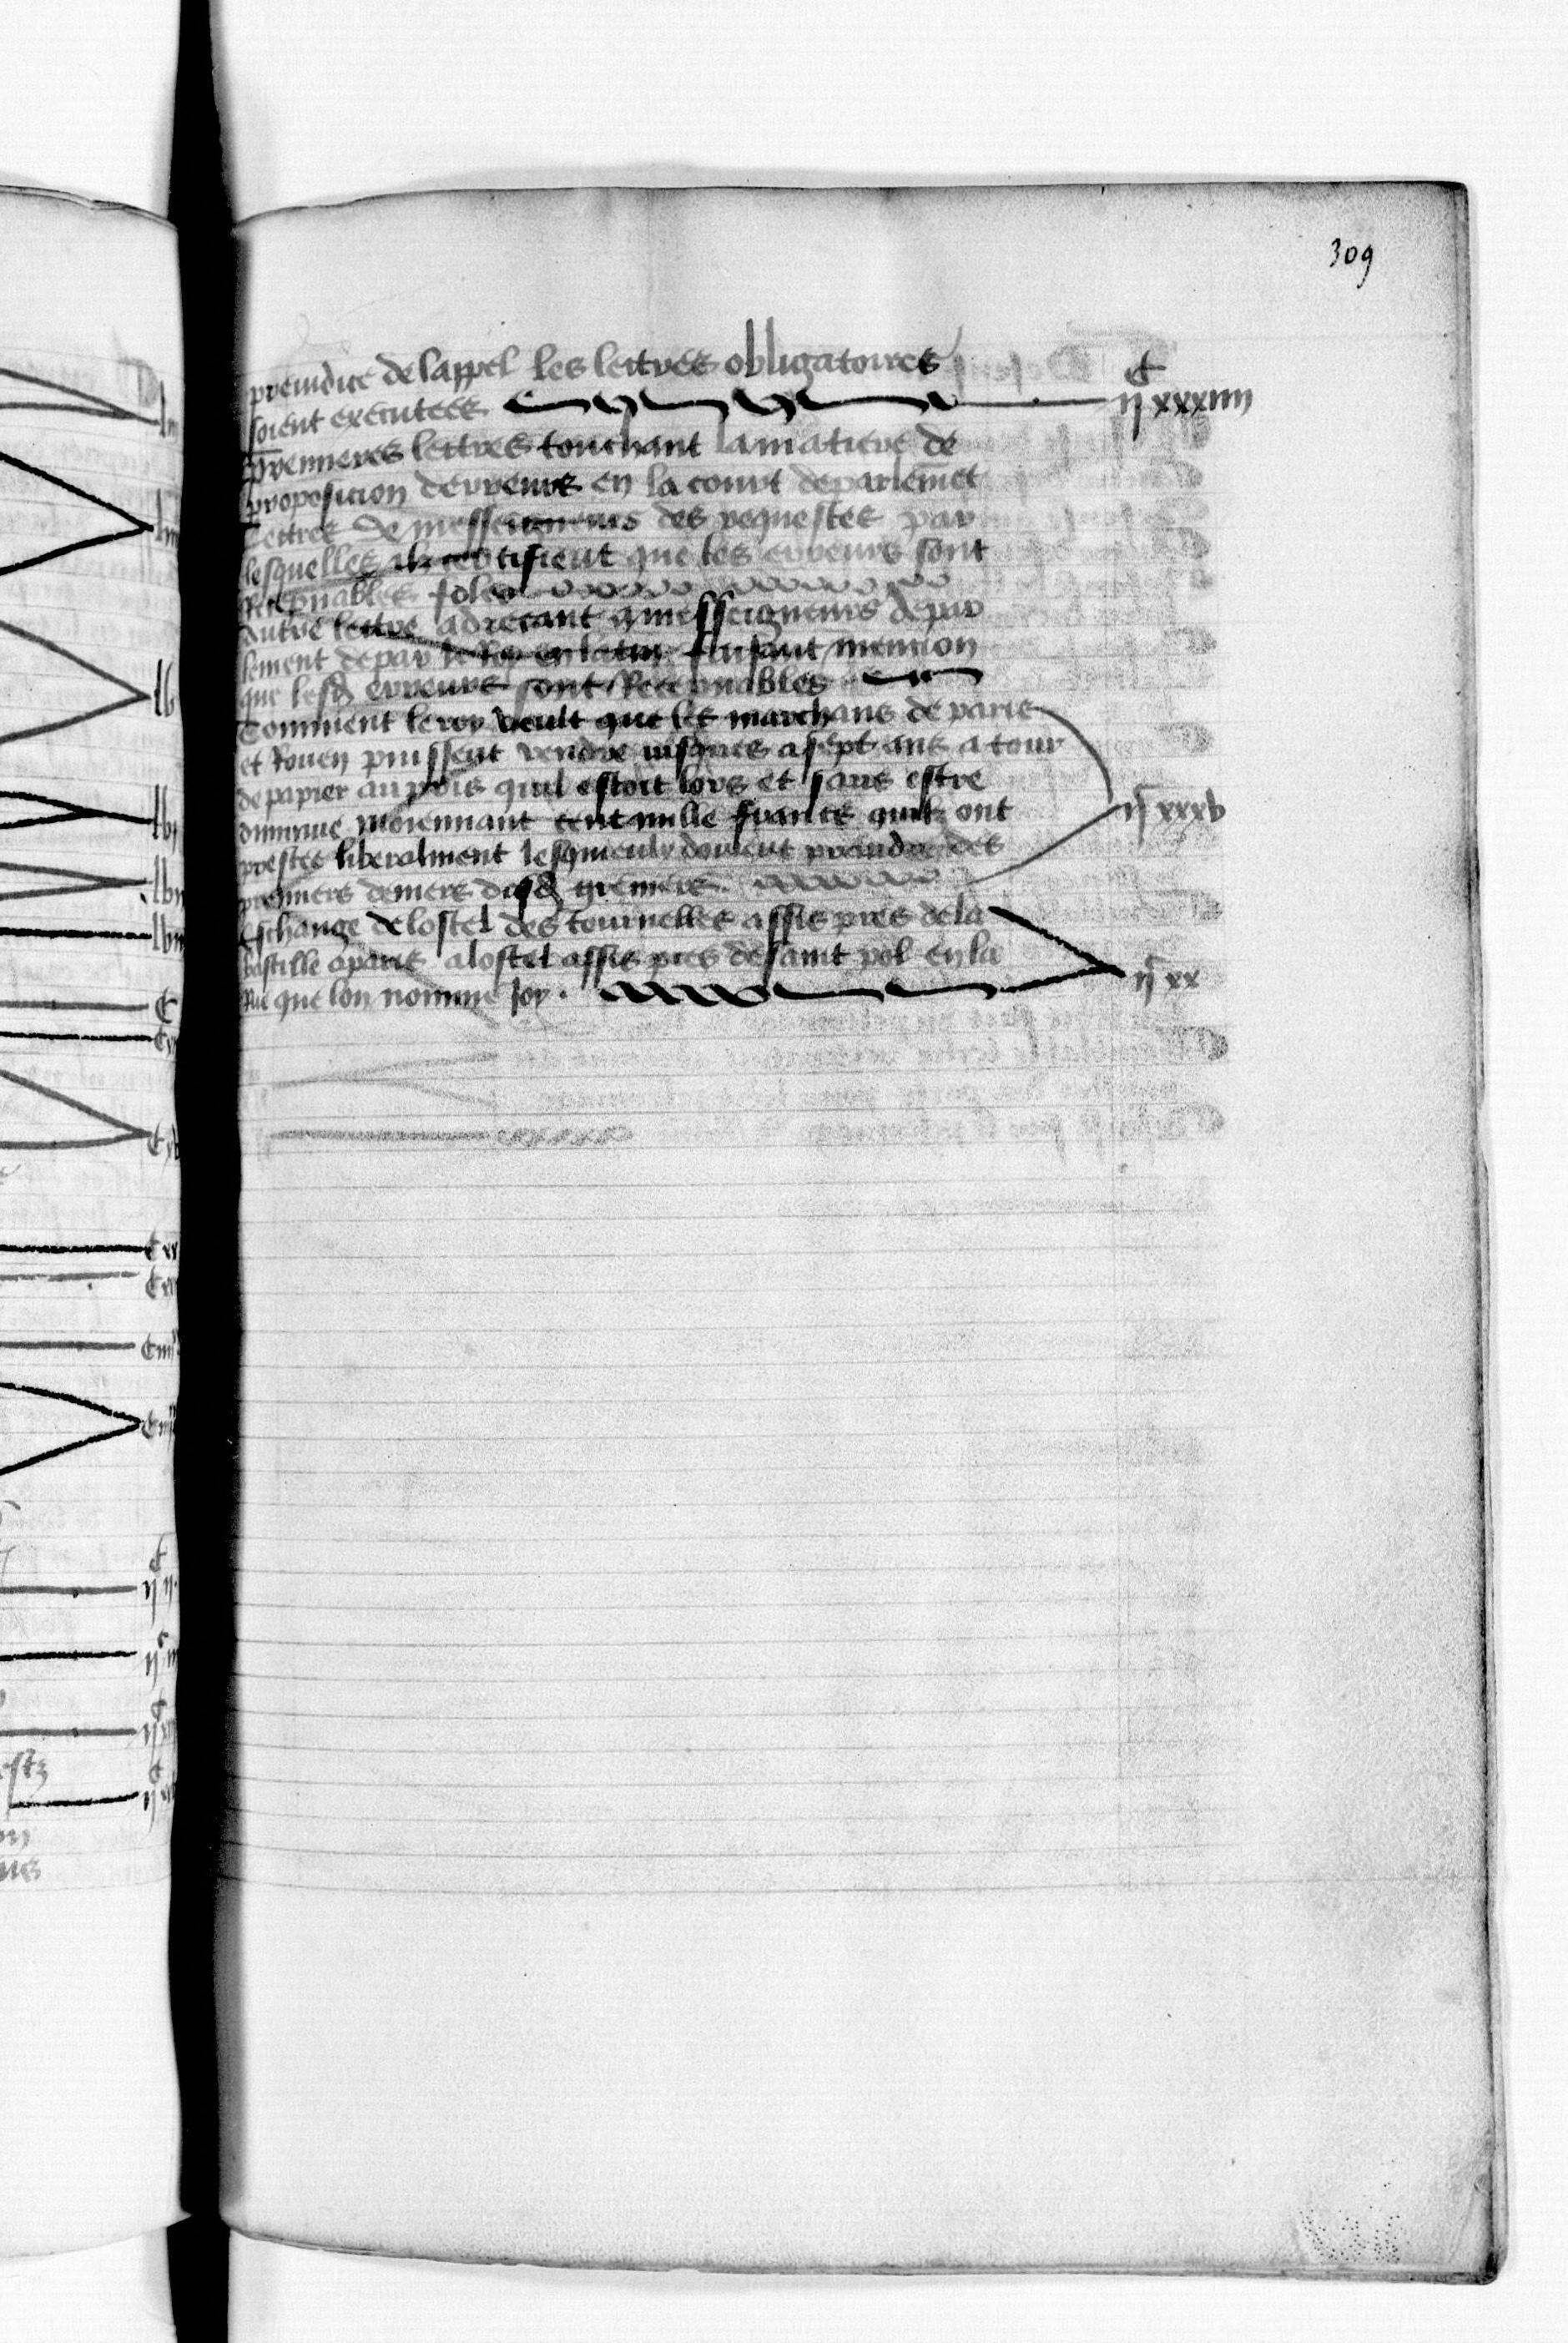 309
preiudice de lappel les lettres obligatoires
soient executees ii c xxxiiii
Premieres lettres touchant la matiere de
proposicion derreurs en la court de parlemēt
Lettres de messeigneurs des requestes par
lesquelles ilz certifient que les erreurs sont
Receuables folio
Autre lettre adrecant a messeigneurs de par
lement de par le Roy en latin faisant mencion
que lesd erreurs sont Receuables
Comment le roy veult que les marchans de paris
et Rouen puissent vendre iusques a sept ans a tour
de papier au pris quil estoit lors et sans estre
diminue moiennant cent mille francs quilz ont
prestes liberalment lesquieulx doiuent prendre des
premiers deniers desd greniers ii c xxxv
Eschange de lostel des tournelles assis pres de la
bastille a paris a lostel assis pres de saint pol en la
Rue que lon nomme Joy. ii c xx